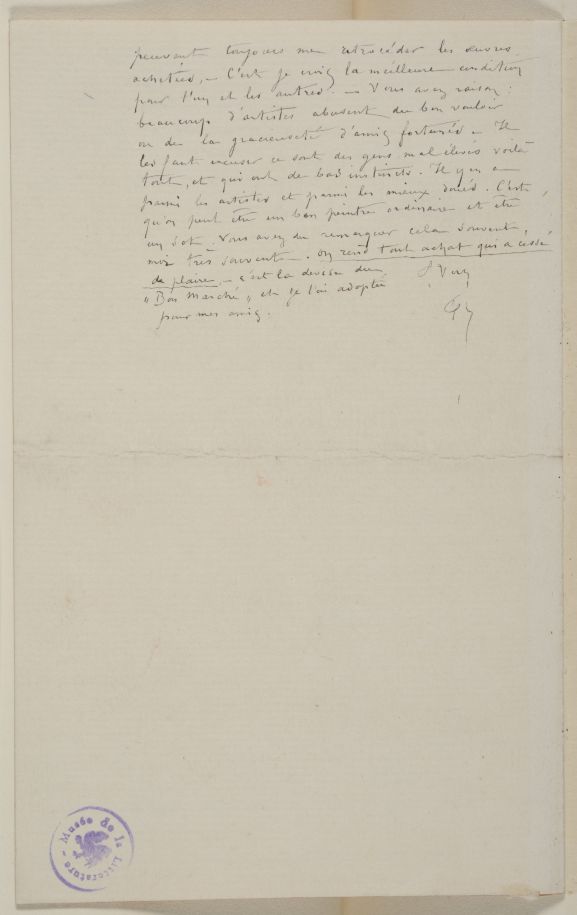 peuvent toujours me rétrocéder les œuvres
achetées, – C'est je crois la meilleure condition
pour l'un et les autres. – Vous avez raison :
beaucoup d'artistes abusent du bon vouloir
ou de la gracieuseté d'amis fortunés. Il
les faut excuser ce sont des gens mal élevés voilà
tout, et qui ont de bas instincts. Il y en a
parmi les artistes et parmi les mieux doués. C'est
qu'on peut être un bon peintre ordinaire et être
un sot. Vous avez dû remarquer cela souvent,
moi très souvent. on rend tout achat qui a cessé
de plaire, – c'est la devise du
"Bon Marché" et je l'ai adoptée
pour mes amis.
à Vous
Musée de la Littérature